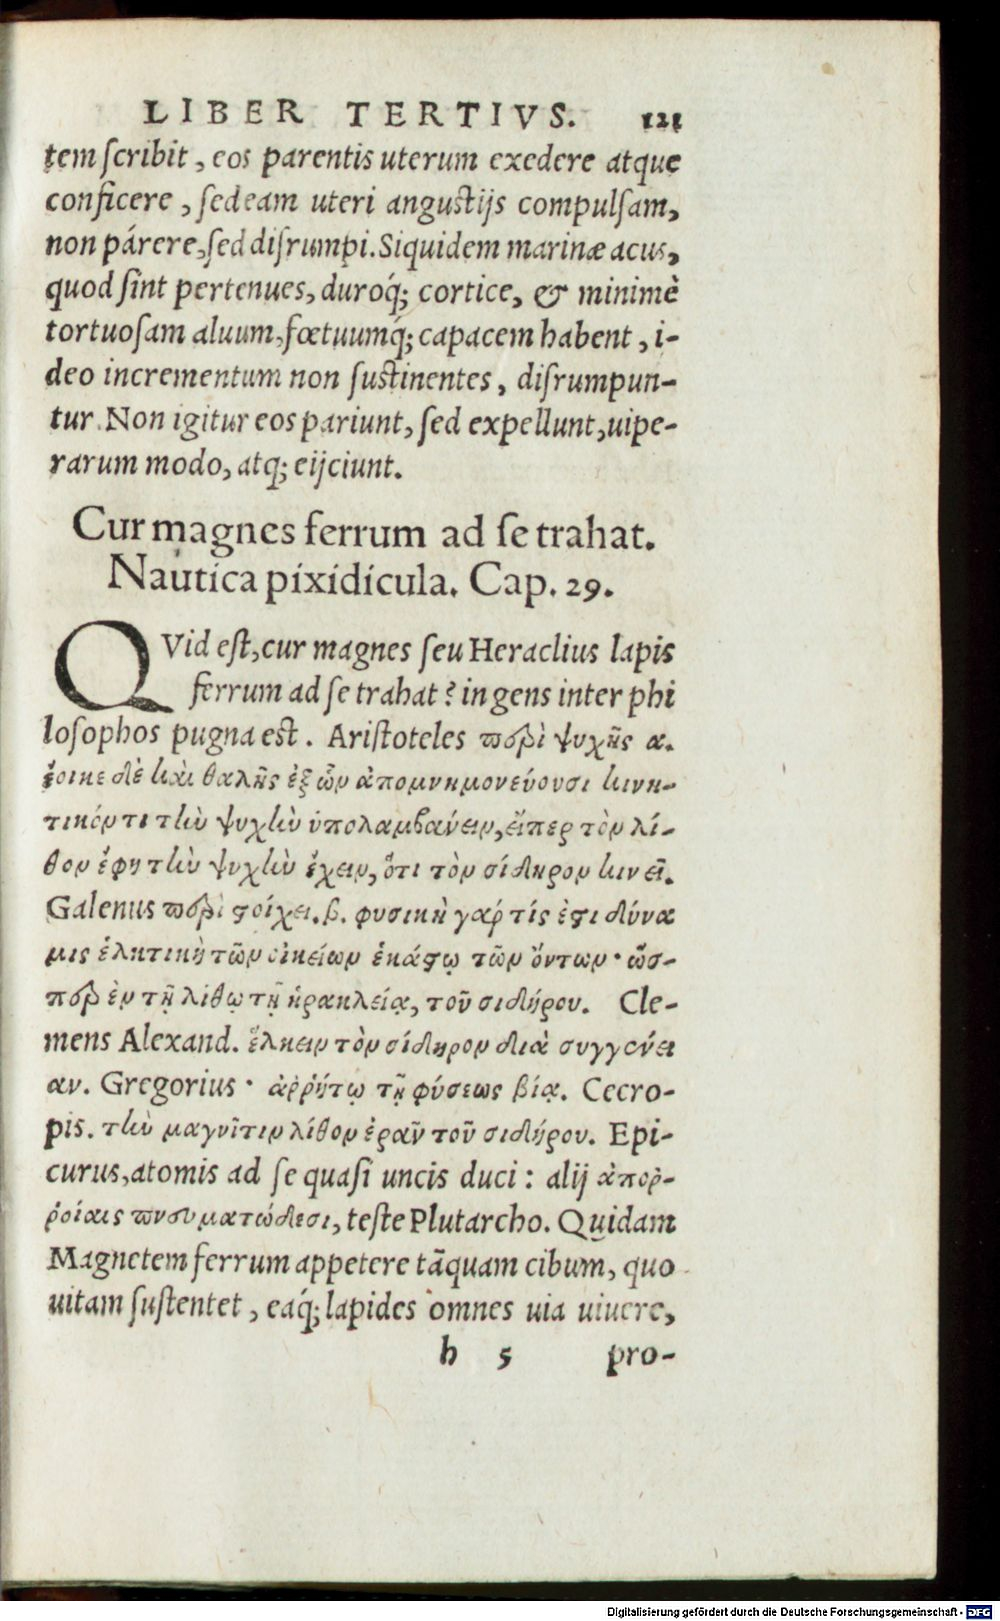 LIBER TERTIVS. 121
tem ſcribit, eos parentis uterum exedere atque
conficere, ſed eam uteri anguſtijs compulſam,
non párere, ſed diſrumpi. Siquidem marinæ acus,
quod ſint pertenues, duroq́; cortice, & minimè
tortuoſam aluum, fœtuumq́; capacem habent, i-
deo incrementum non ſuſtinentes, diſrumpun-
tur. Non igitur eos pariunt, ſed expellunt, uipe-
rarum modo, atq; eijciunt.
Cur magnes ferrum ad ſe trahat.
Nautica pixidicula. Cap. 29.
QVid eſt, cur magnes ſeu Heraclius lapis
ferrum ad ſe trahat? ingens inter phi
loſophos pugna est. Ariſtoteles περὶ ψυχῆς α.
ἔοικε δὲ καὶ θαλῆς ἐξ ὧν ἀπομνημονεύουσι κινη-
τικόν τι τὴν ψυχὴν ὑπολαμβάνειν, εἴπερ τὸν λί-
θον ἔφη τὴν ψυχὴν ἔχειν, ὅτι τὸν σίδηρον κινεῖ.
Galenus περὶ ϛοίχει. β. φυσικὴ γάρ τίς ἐϛι δύνα
μις ἑλκτικὴ τῶν οἰκείων ἑκάϛῳ τῶν ὄντων· ὥσ-
περ ἐν τῇ λίθῳ τῇ ἡρακλείᾳ, τοῦ σιδήρου. Cle-
mens Alexand. ἕλκειν τὸν σίδηρον διὰ συγγένει
αν. Gregorius· ἀῤῥήτῳ τῇ φύσεως βίᾳ. Cecro-
pis. τὴν μαγνῖτιν λίθον ἐρᾶν τοῦ σιδήρου. Epi-
curus, atomis ad ſe quaſi uncis duci: alij ἀποῤ-
ῥοίαις πνευματώδεσι, teſte Plutarcho. Quidam
Magnetem ferrum appetere tāquam cibum, quo
uitam ſuſtentet, eaq́; lapides omnes uia uiuere,
h 5 pro-
Digitalisierung gefördert durch die Deutsche Forschungsgemeinschaft - DFG